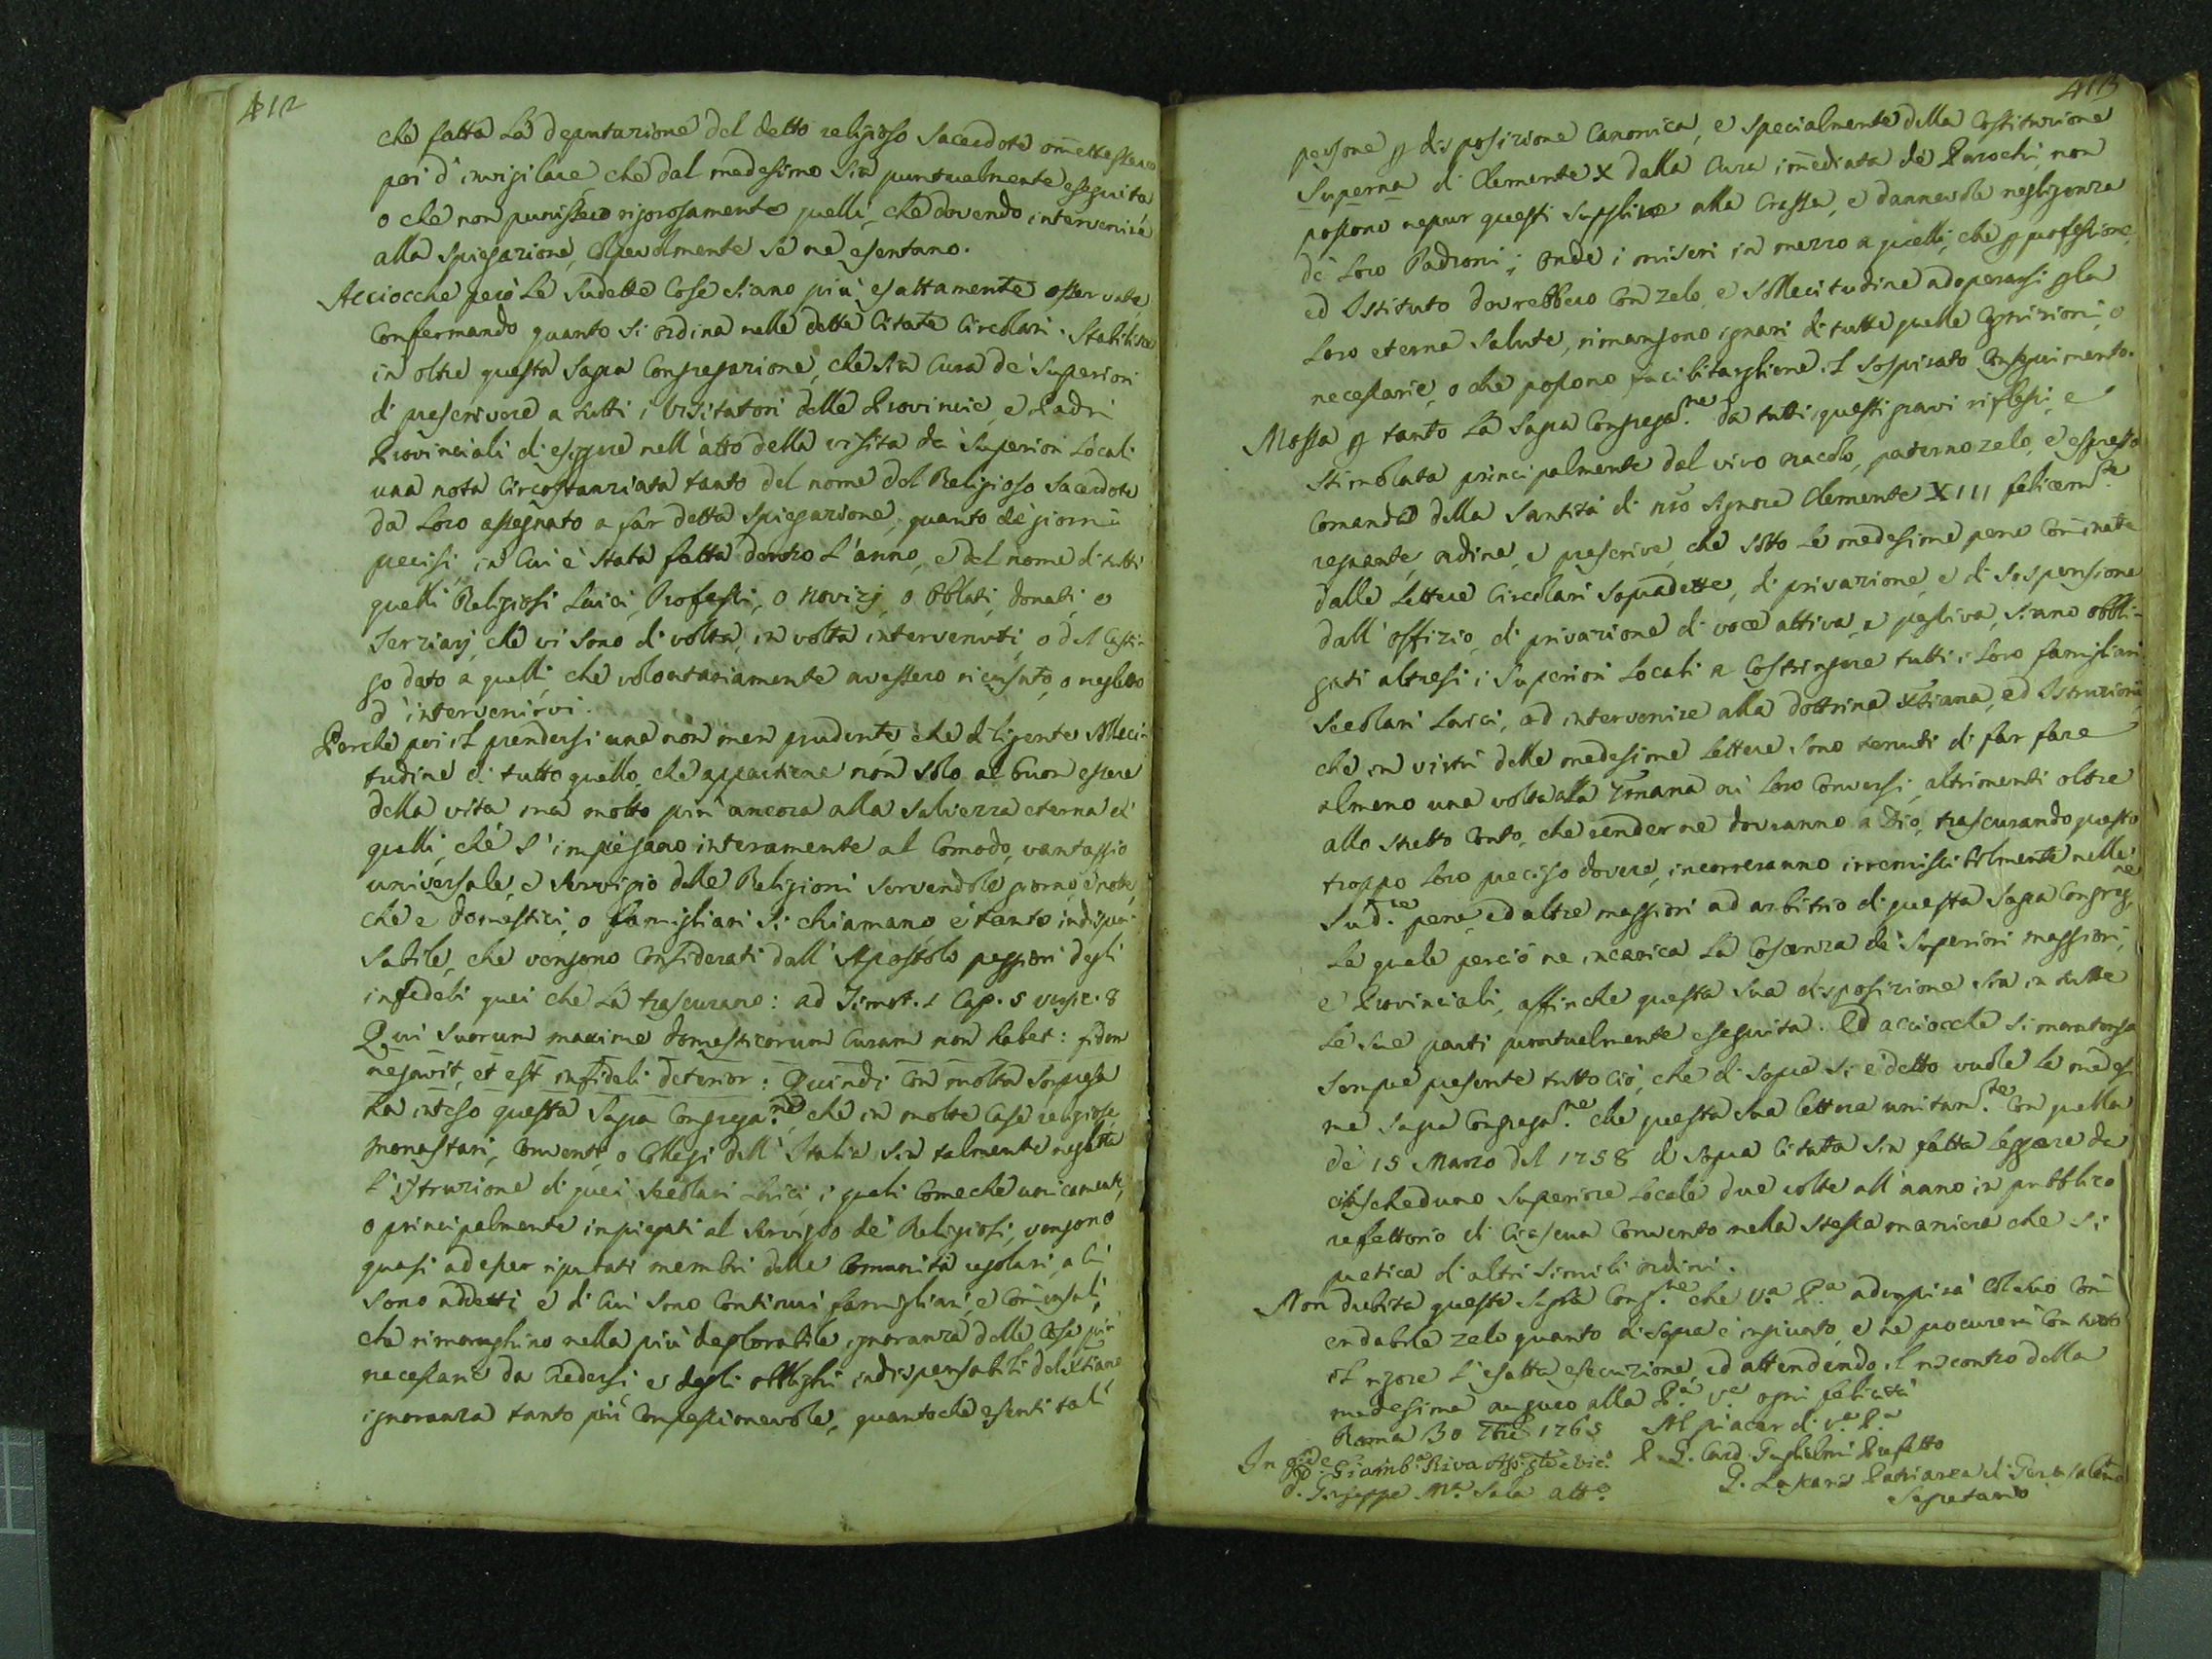 412
che fatta la deputazione del detto religioso Sacerdote om̃ettessero
poi d'invigilare, che dal medesimo sia puntualmente eseguita
o che non punissero rigorosamente quelli, che dovendo intervenire
alla spiegazione, colpevolmente se ne esentano.
Acciocche però le sudette cose siano più esattamente osservate,
confermando quanto si ordina nelle dette citate Circolari. Stabilisce
in oltre questa Sagra Congregazione, che sia cura de' Superiori
di prescrivere a tutti i Visitatori delle Provincie, e Padri
Provinciali di esiggere nell'atto della visita da' Superiori Locali
una nota circostanziata tanto del nome del Religioso Sacerdote
da loro assegnato a far detta spiegazione, quanto de' giorni
precisi in cui è stata fatta dentro l'anno, e del nome di tutti
quelli Religiosi Laici, Professi, o Novizj, o Oblati, donati, o
Terziarj, che vi sono di volta in volta intervenuti, o del Casti-
go dato a quelli, che volontariamente avessero ricusato, o negletto
d'intervenirvi.
Perche poi il prendersi una non men prudente che diligente solleci-
tudine di tutto quello, che appartiene non solo al buon essere
della vita, ma molto più ancora alla salvezza eterna di
quelli, che s'impiegano interamente al comodo, vantaggio
universale, e servigio delle Religioni servendole giorno, e notte,
che e domestici, o famigliari si chiamano, è tanto indispen-
sabile, che vengono considerati dall'Apostolo peggiori degli
infedeli quei che la trascurano: ad Timot. 1 Cap. 5 versic. 8
Qui suorum maxime domesticorum curam non habet: fidem
negavit, et est infideli deterior: Quindi con molta sorpresa
ha inteso questa Sagra Congrega.ne, che in molte case religiose,
monasteri, conventi, o Collegi dell'Italia sia talmente negletta
l'istruzione di quei secolari Laici, i quali comeche unicamente,
o principalmente impiegati al servigio de' Religiosi, vengono
quasi ad esser riputati membri delle Comunità regolari, a cui
sono addetti, e di cui sono continui famigliari, e com̃ensali,
che rimanghino nella più deplorabile ignoranza delle cose più
necessarie da credersi, e degli obblighi indispensabili del Xtiano,
ignoranza tanto più compassionevole, quantoche esenti tali
413
persone p disposizione Canonica, e specialmente della Costituzione
Superna di Clemente X dalla cura im̃ediata de' Parochi, non
possono nepur questi supplire alla crassa, e dannevole negligenza
de' loro Padroni; onde i miseri in mezzo a quelli, che p professione,
ed Istituto dovrebbero con zelo, e sollecitudine adoperarsi p la
loro eterna salute, rimangono ignari di tutte quelle cognizioni, o
necessarie, o che possono facilitarglione il sospirato conseguimento.
Mossa p tanto la Sagra Congrega.ne da tutti questi gravi riflessi, e
stimolata principalmente dal vivo oracolo, paterno zelo, e espresso
comando della Santità di nr̃o Signore Clemente XIII felicem.te
regnante, ordina, e prescrive, che sotto le medesime pene com̃inate
dalle Lettere Circolari sopradette, di privazione, e di sospensione
dall'offizio, di privazione di voce attiva, e passiva, siano obbli-
gati altresi i Superiori Locali a costringere tutti i loro famigliari
secolari laici, ad intervenire alla dottrina Xtiana, ed Istruzioni
che in virtù delle medesime Lettere sono tenuti di far fare
almeno una volta alla 7mana ai loro Conversi, altrimenti oltre
allo stretto conto, che renderne dovranno a Dio, trascurando questo
troppo loro preciso dovere, incorreranno irremisibilmente nelle
sud.te pene, ed altre maggiori ad arbitrio di questa Sagra Congreg.ne
la quale perciò ne incarica la coscienza de' Superiori maggiori,
e Provinciali, affinche questa sua disposizione sia in tutte
le sue parti puntualmente eseguita. Ed acciocche si mantenga
sempre presente tutto ciò, che di sopra si è detto vuole la medesi
ma Sagra Congrega.ne che questa sua lettera unitam.te con quella
de' 15 Marzo del 1758 di sopra citata sia fatta leggere da
ciascheduno Superiore Locale due volte all'anno in pubblico
refettorio di ciascun Convento nella stessa maniera che si
pratica di altri simili ordini.
Non dubita questa Sagra Cong.ne che V.a P.a adempirà col suo com̃
endabile zelo quanto di sopra è ingiunto, e ne procurerà con tutto
il rigore l'esatta esecuzione, ed attendendo il riscontro della
medesima auguro alla P.a V.a ogni felicità
Roma 30 7bre 1765 Al piacer di V.a P.a
In fede P. G. Card. Guglielmi Prefetto
D. Giamb.a Riva
D. Giuseppe M.a Sala att.o P. Laskaris Patriarca di Gerusalem̃e
Segretario